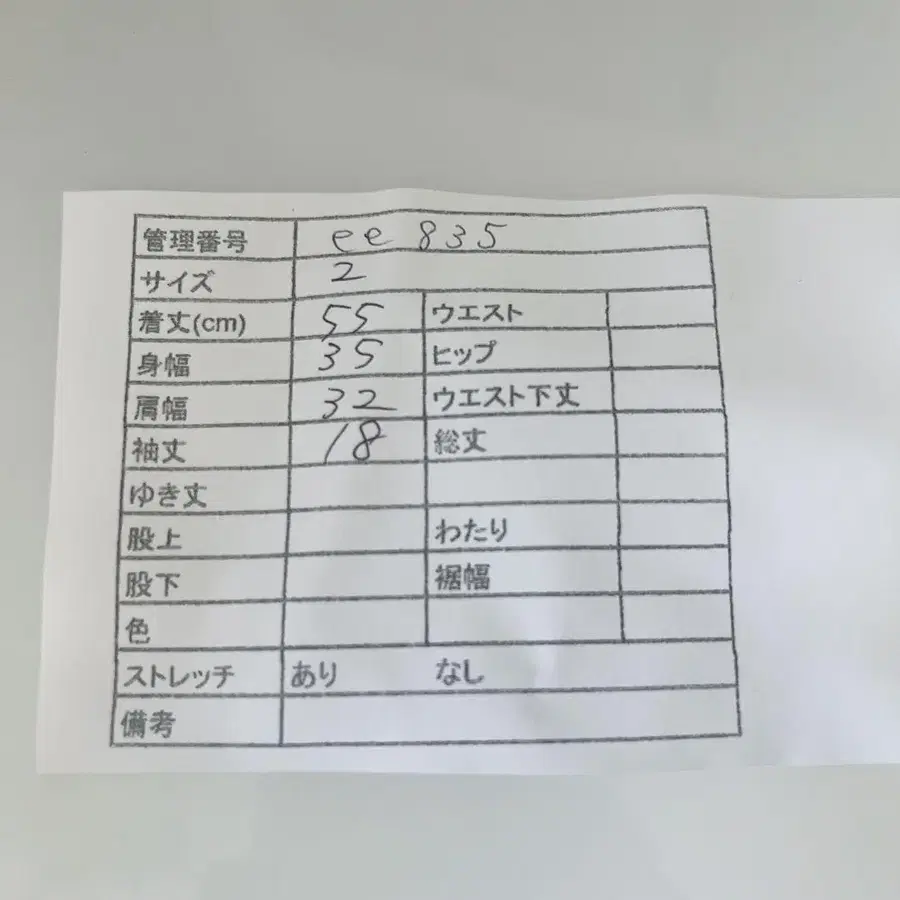 管理番号 ee 835
サイズ 2
着丈(cm) 55 ウエスト
身幅 35 ヒップ
肩幅 32 ウエスト下丈
袖丈 18 総丈
ゆき丈
股上 わたり
股下 裾幅
色
ストレッチ あり なし
備考